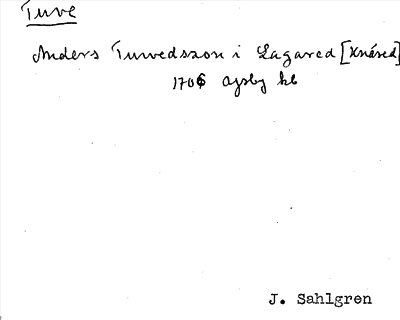 Tuve
Anders Tuwedsson i Lagared [Knäred]
1706 Aysby kb
J. Sahlgren